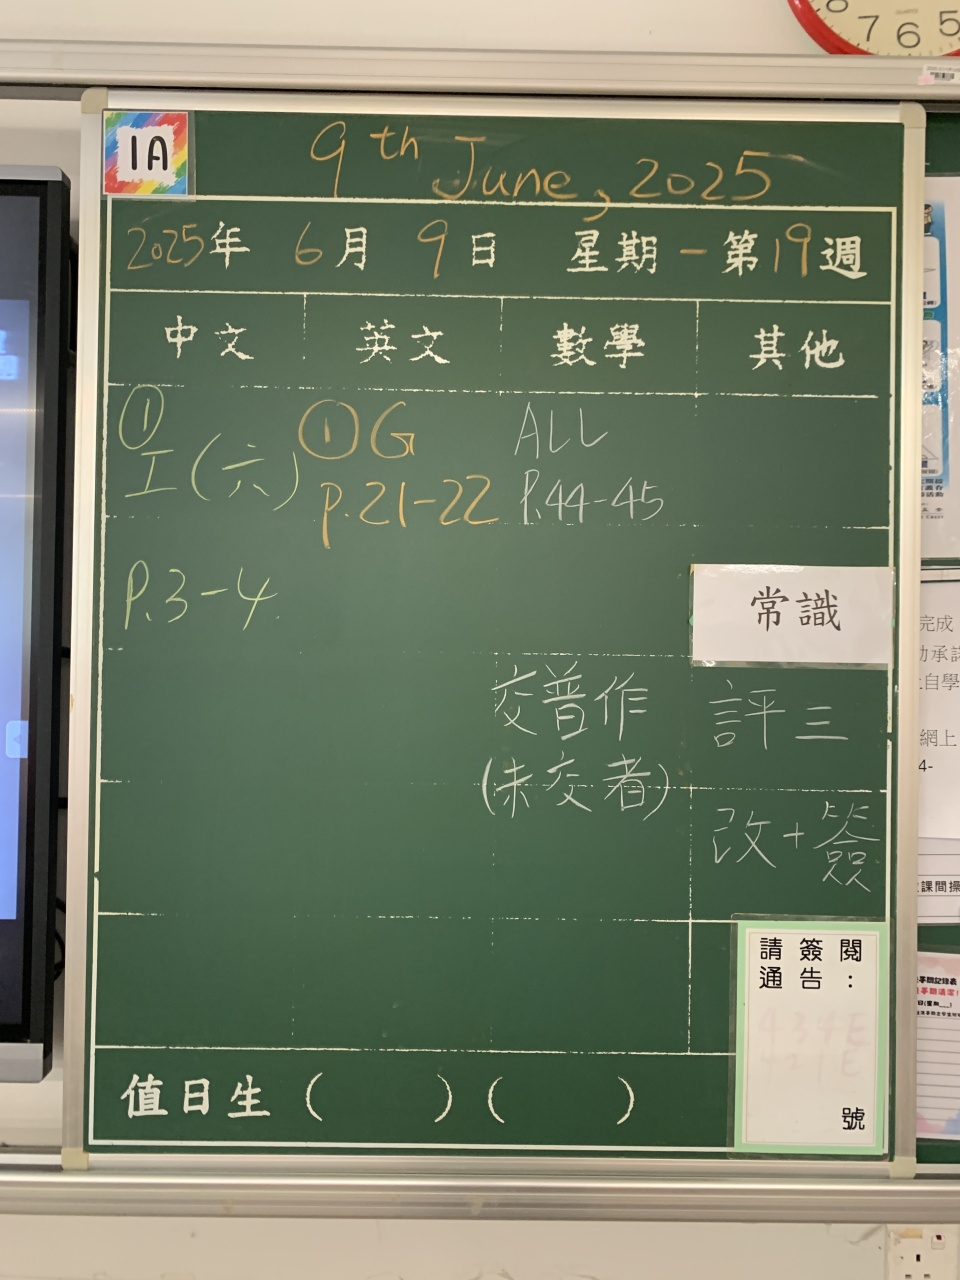 8 7 6 5
1A
9th June, 2025
2025年 6月 9日 星期一 第19週
中文 英文 數學 其他
① 工(六)
P.3-4
① G
p.21-22
ALL
P.44-45
交普作
(未交者)
常識
評三
改+簽
請簽閱
通告:
434E
421E
號
值日生 ( ) ( )
完成
自學
網上
4-
課間操